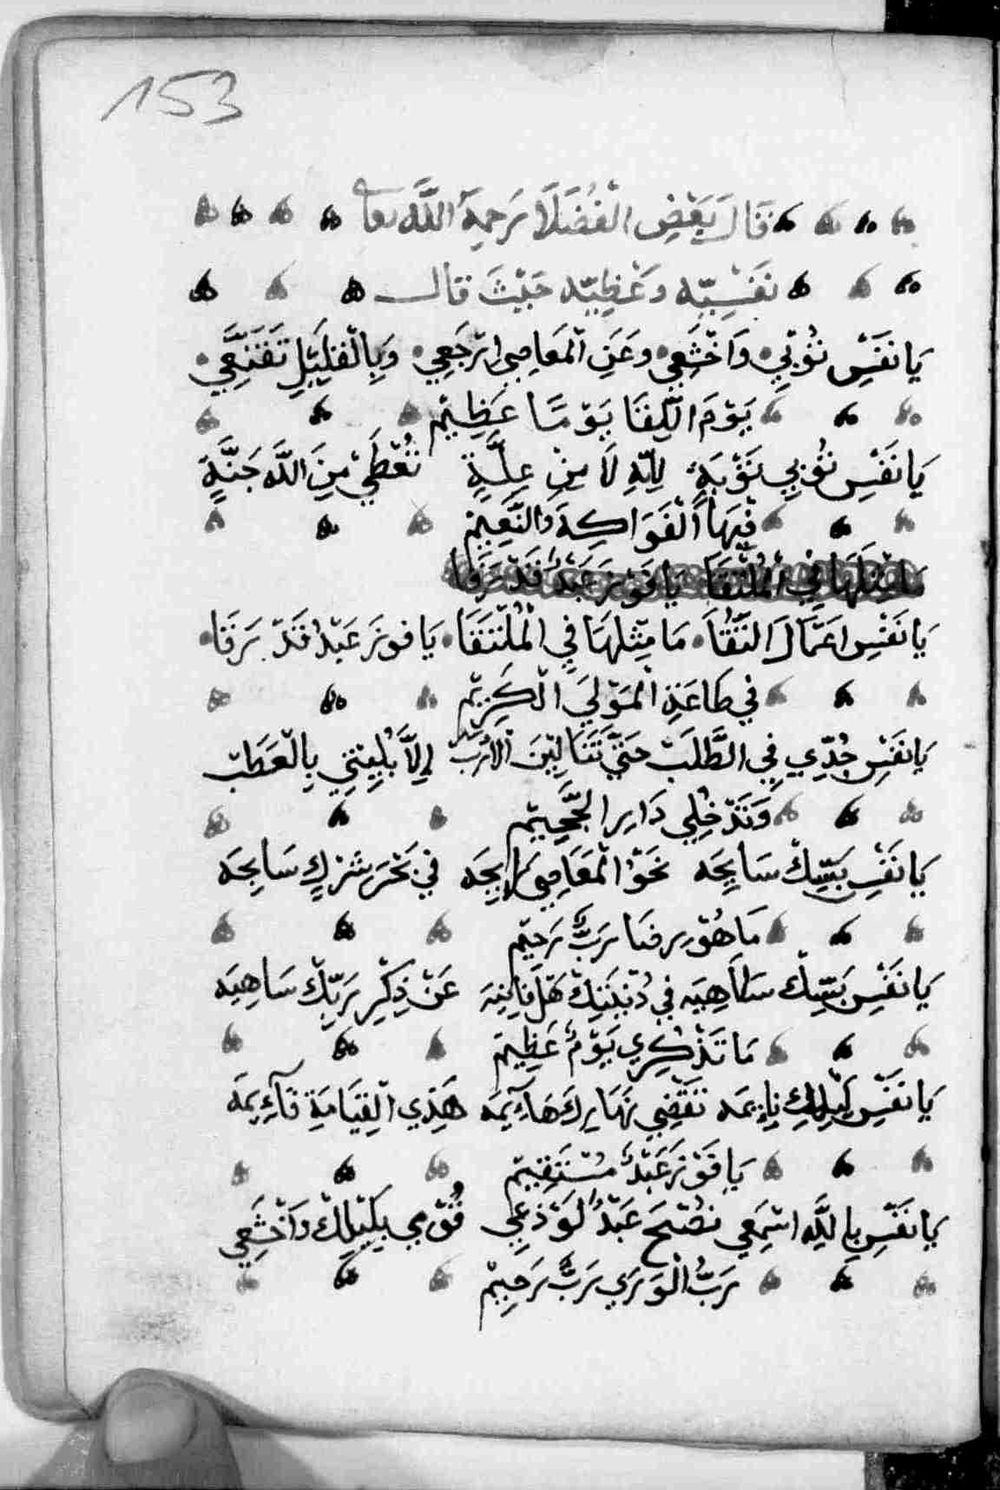 153
قال بعض الفضلا رحمة الله تعالى
نفسيه وعظيه حيث قال
يا نفس توبي واخشعي وعن المعاصي ارجعي وبالقليل تقنعي
يوم اللقا يوما عظيم
يا نفس توبي توبة لله لا من علة تعطى من الله جنة
فيها الفواكه والنعيم
ما مثلها في الملتقا يا فوز عبد قد رقا
يا نفس اعمال التقا ما مثلها في الملتقا يا فوز عبد قد رقا
في طاعة المولى الكريم
يا نفس جدي في الطلب حتى تنالين الارب إلا بليتي بالعطب
وتدخلي دار الجحيم
يا نفس بسك سايحه نحو المعاصي رايحه في بحر شرك سابحه
ما هو رضا رب رحيم
يا نفس بسك ساهيه في دنيتك هل فانيه عن ذكر ربك ساهيه
ما تذكري يوم عظيم
يا نفس ليلك نايمه تقضي نهارك هايمه هذي القيامة قآيمه
يا فوز عبد مستقيم
يا نفس بالله اسمعي نصح عبد لوذعي قومي بليلك واخشعي
رب الورى رب رحيم